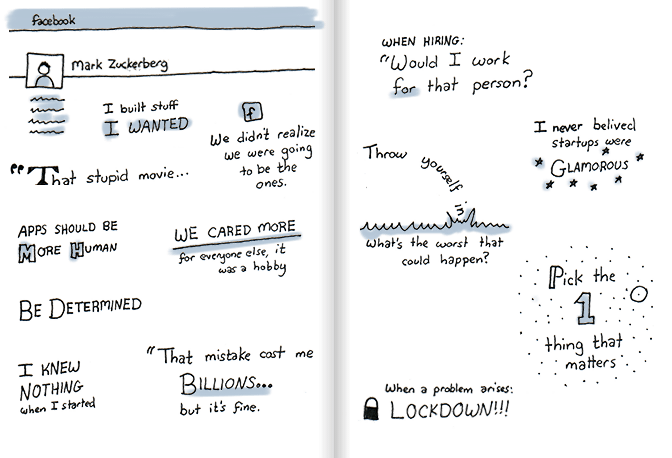 facebook
Mark Zuckerberg
I built stuff
I WANTED
f
We didn't realize
we were going
to be the
ones.
"That stupid movie...
APPS SHOULD BE
MORE HUMAN
WE CARED MORE
for everyone else, it
was a hobby
BE DETERMINED
I KNEW
NOTHING
when I started
"That mistake cost me
BILLIONS...
but it's fine.
WHEN HIRING:
"Would I work
for that person?
I never belived
startups were
GLAMOROUS
Throw yourself in
What's the worst that
could happen?
Pick the
1
thing that
matters
When a problem arises:
LOCKDOWN!!!